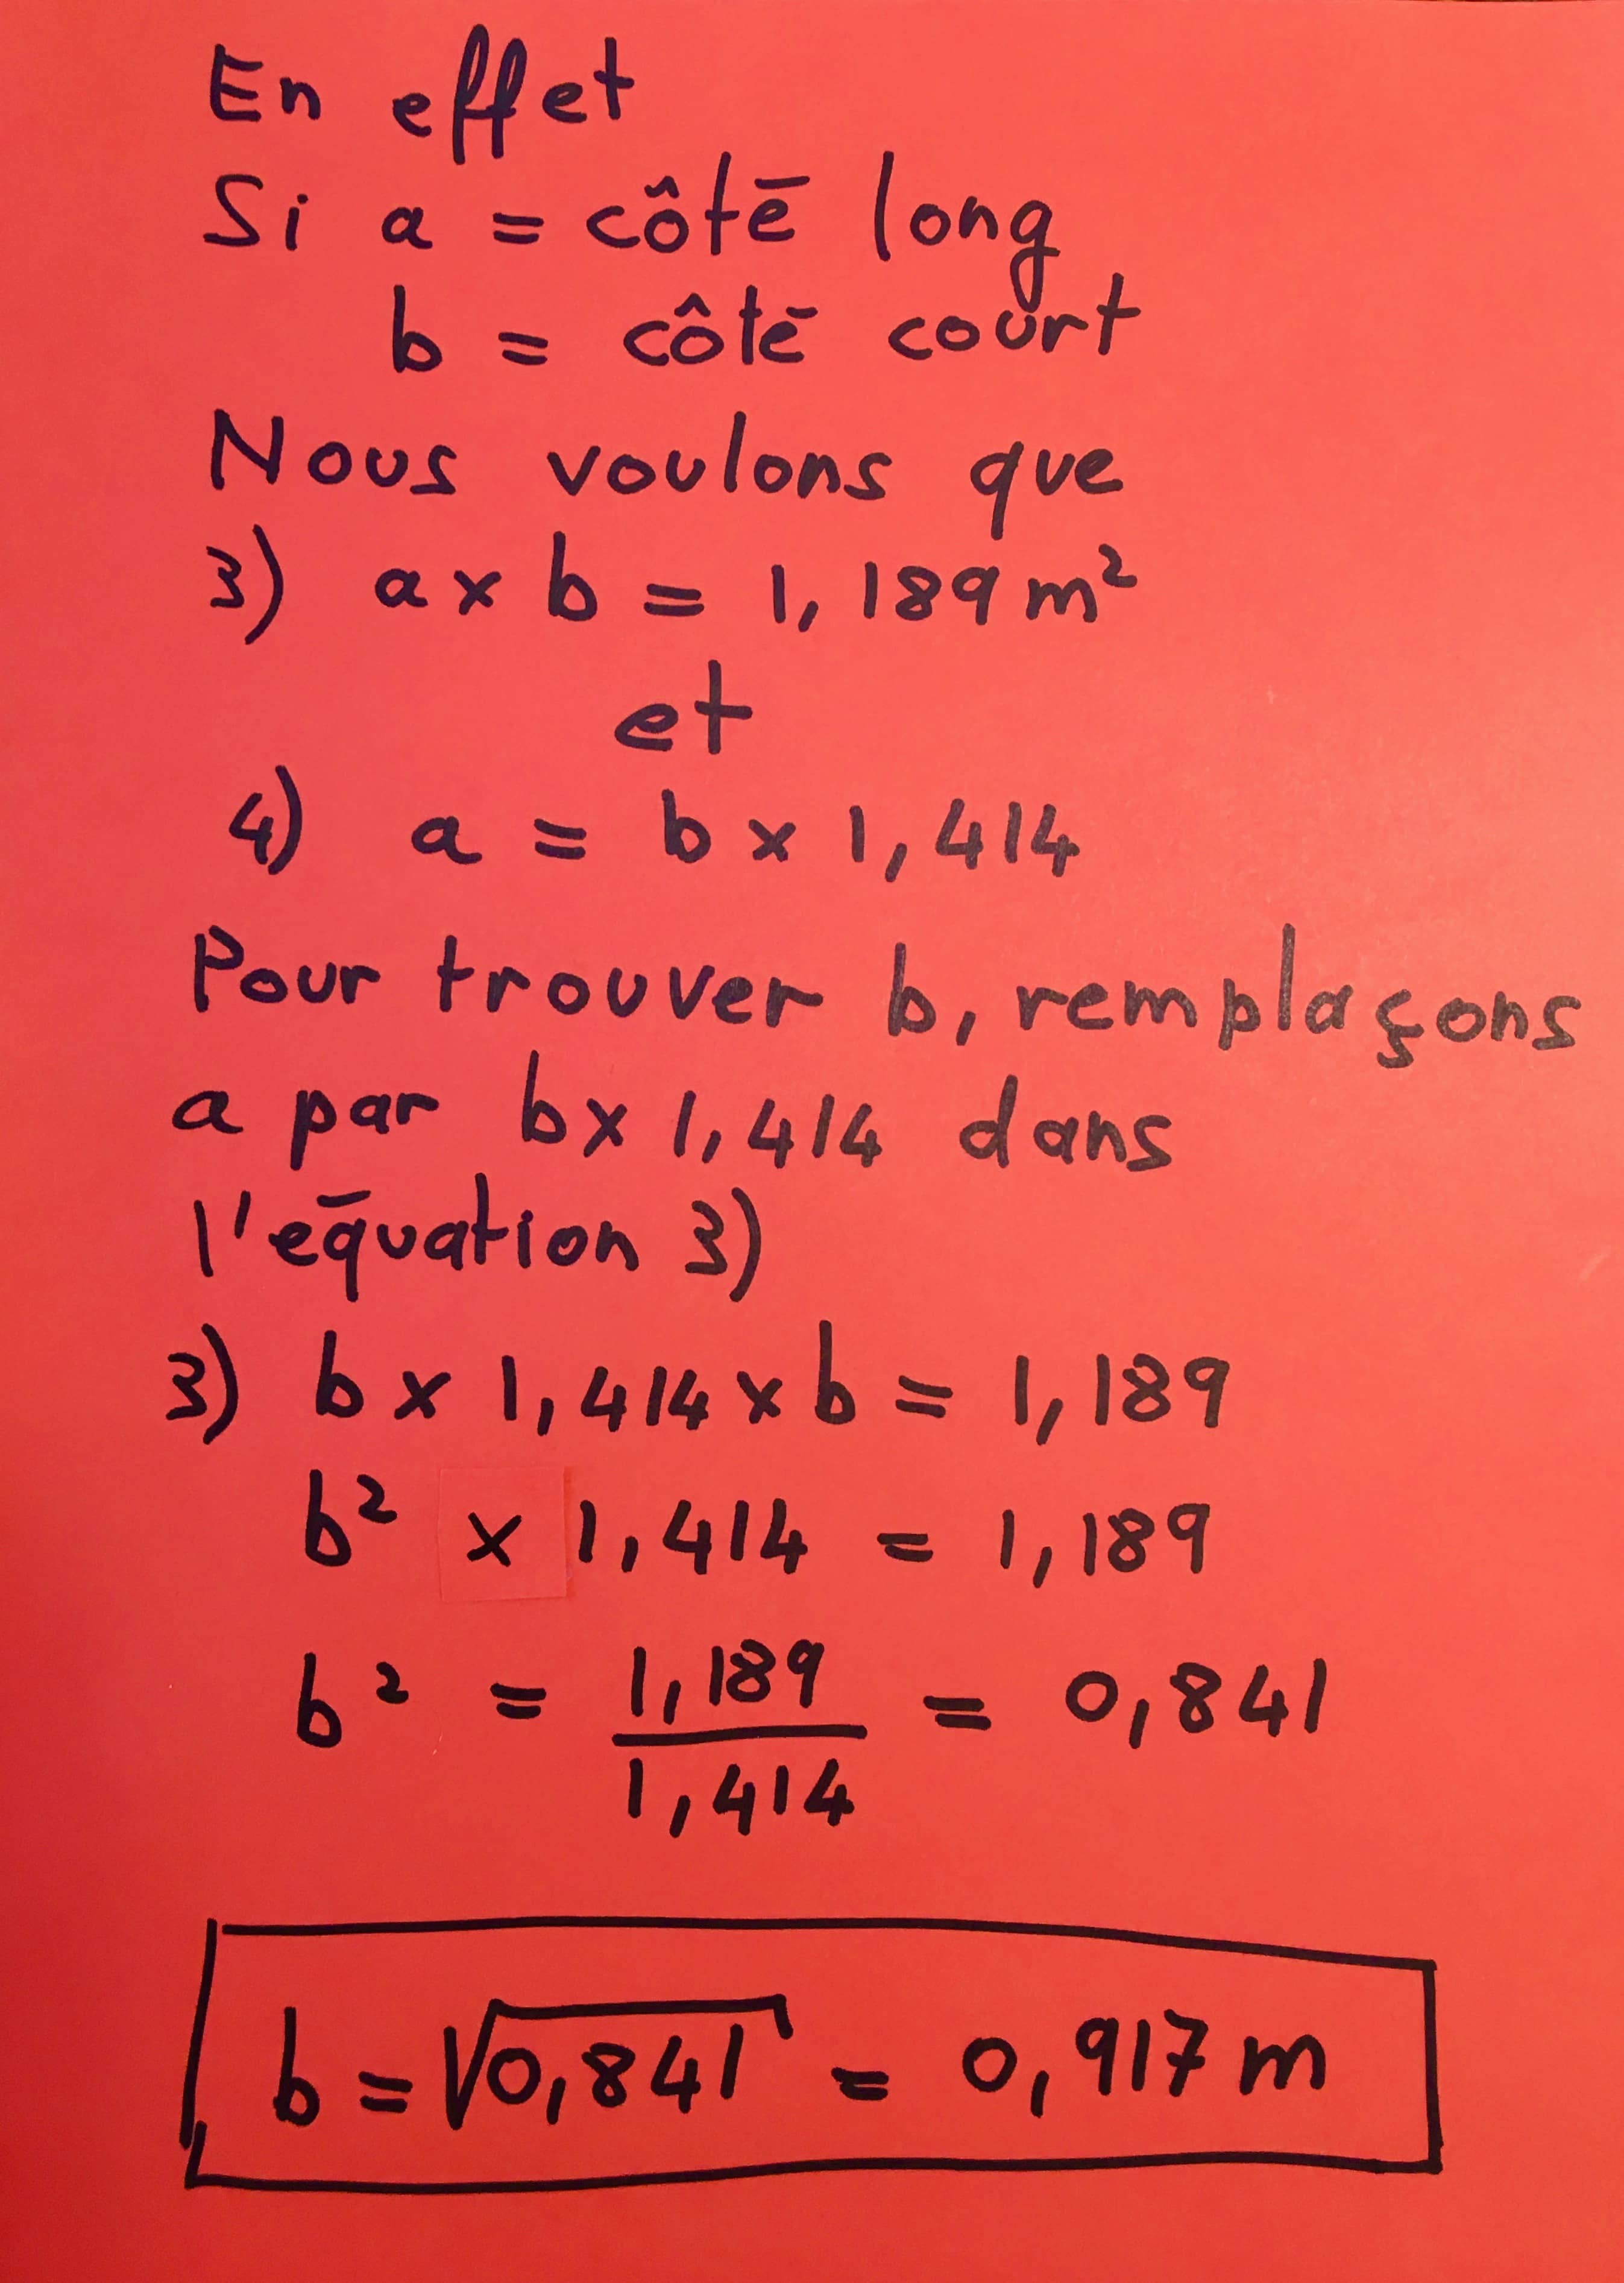 En effet
Si a = côté long
b = côté court
Nous voulons que
3) a x b = 1,189 m²
et
4) a = b x 1,414
Pour trouver b, remplaçons
a par b x 1,414 dans
l'équation 3)
3) b x 1,414 x b = 1,189
b² x 1,414 = 1,189
b² = 1,189 / 1,414 = 0,841
b = √0,841 = 0,917 m